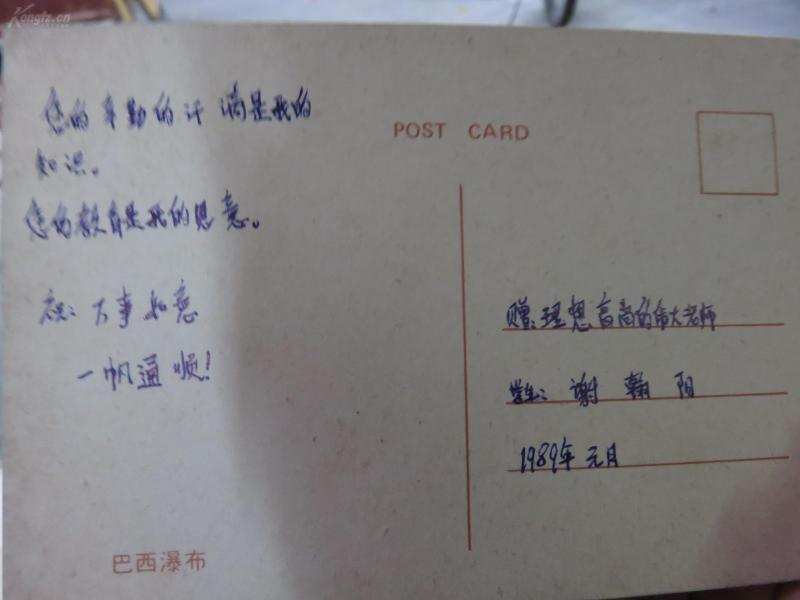 Kongfz.cn
您的辛勤的汗滴是我的
知识。
您的教育是我的恩意。
祝:万事如意
一帆通顺!
巴西瀑布
POST CARD
赠:理想高尚的伟大老师
学生:谢翰阳
1989年元月